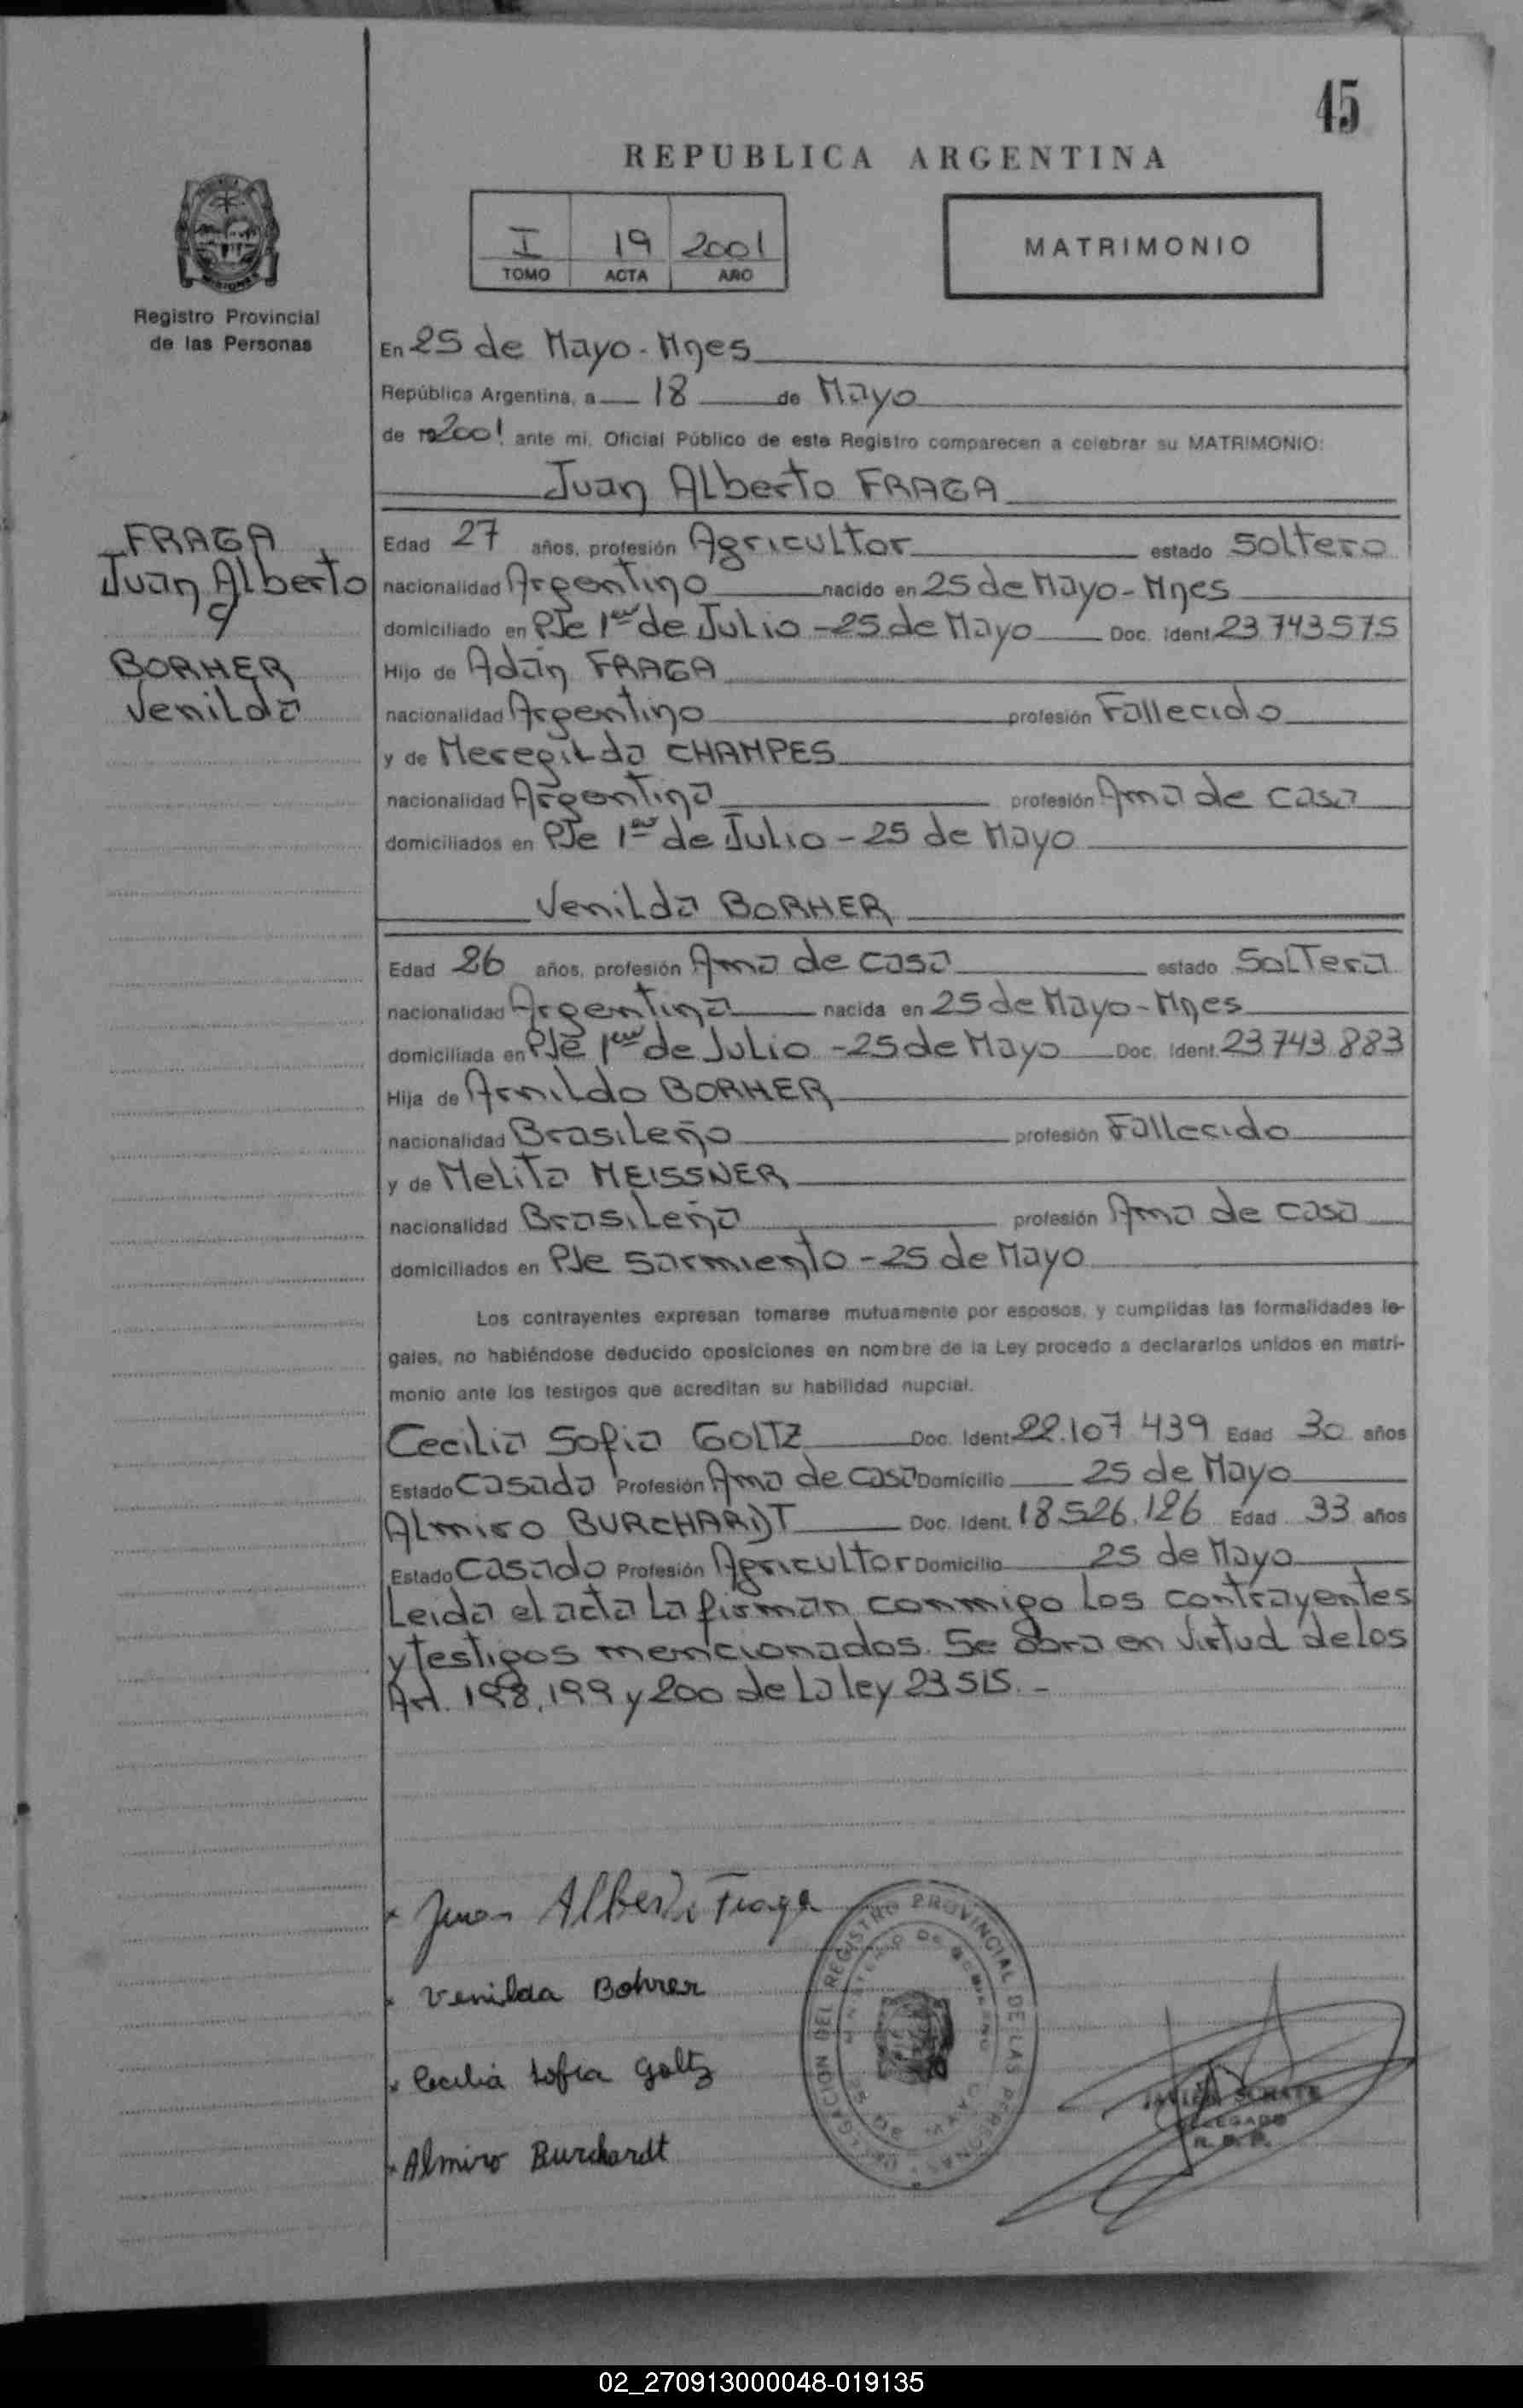 45
REPUBLICA ARGENTINA
I 19 2001
TOMO ACTA AÑO
MATRIMONIO
Registro Provincial
de las Personas
FRAGA
Juan Alberto
y
BORHER
Venilda
En 25 de Mayo - Mnes
República Argentina, a 18 de Mayo
de 2001 ante mi, Oficial Público de este Registro comparecen a celebrar su MATRIMONIO:
Juan Alberto FRAGA
Edad 27 años, profesión Agricultor estado Soltero
nacionalidad Argentino nacido en 25 de Mayo - Mnes
domiciliado en PJe 1er de Julio - 25 de Mayo Doc. Ident. 23.743.575
Hijo de Adán FRAGA
nacionalidad Argentino profesión Fallecido
y de Meregilda CHAMPES
nacionalidad Argentina profesión Ama de casa
domiciliados en PJe 1er de Julio - 25 de Mayo
Venilda BORHER
Edad 26 años, profesión Ama de casa estado Soltera
nacionalidad Argentina nacida en 25 de Mayo - Mnes
domiciliada en PJe 1er de Julio - 25 de Mayo Doc. Ident. 23.743.883
Hija de Arnildo BORHER
nacionalidad Brasileño profesión Fallecido
y de Melita MEISSNER
nacionalidad Brasileña profesión Ama de casa
domiciliados en PJe Sarmiento - 25 de Mayo
Los contrayentes expresan tomarse mutuamente por esposos, y cumplidas las formalidades le-
gales, no habiéndose deducido oposiciones en nombre de la Ley procedo a declararlos unidos en matri-
monio ante los testigos que acreditan su habilidad nupcial.
Cecilia Sofia GOLTZ Doc. Ident. 22.107.439 Edad 30 años
Estado Casada Profesión Ama de casa Domicilio 25 de Mayo
Almiro BURCHARDT Doc. Ident. 18.526.126 Edad 33 años
Estado Casado Profesión Agricultor Domicilio 25 de Mayo
Leida el acta la firman conmigo los contrayentes
y testigos mencionados. Se obra en virtud de los
Art. 198, 199 y 200 de la ley 23.515. -
Juan Alberto Fraga
Venilda Bohrer
Cecilia Sofia Goltz
Almiro Burchardt
DELEGACION DEL REGISTRO PROVINCIAL DE LAS PERSONAS
MINISTERIO DE GOBIERNO
25 DE MAYO
DELEGADO
R. P. P.
02_270913000048-019135